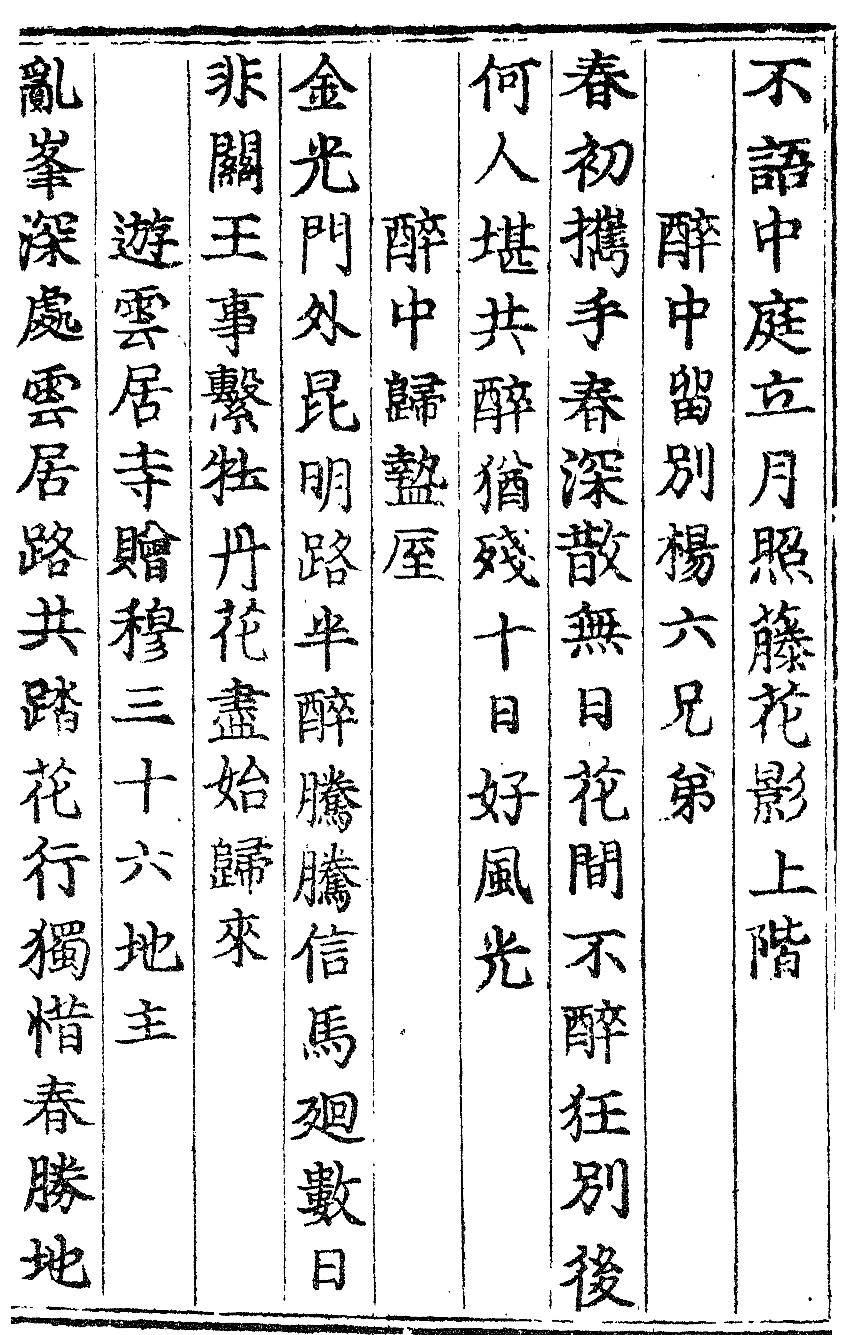 不語中庭立月照藤花影上階
醉中留別楊六兄弟
春初攜手春深散無日花間不醉狂別後
何人堪共醉猶殘十日好風光
醉中歸盩厔
金光門外昆明路半醉騰騰信馬廻數日
非關王事繫牡丹花盡始歸來
遊雲居寺贈穆三十六地主
亂峯深處雲居路共踏花行獨惜春勝地